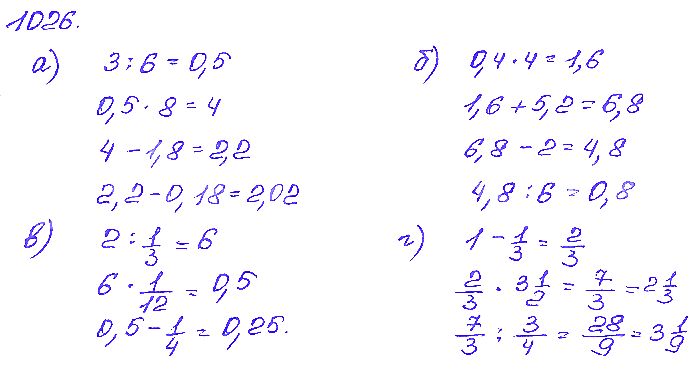 1026.
а) 3 : 6 = 0,5
0,5 · 8 = 4
4 - 1,8 = 2,2
2,2 - 0,18 = 2,02
б) 0,4 · 4 = 1,6
1,6 + 5,2 = 6,8
6,8 - 2 = 4,8
4,8 : 6 = 0,8
в) 2 : 1/3 = 6
6 · 1/12 = 0,5
0,5 - 1/4 = 0,25.
г) 1 - 1/3 = 2/3
2/3 · 3 1/2 = 7/3 = 2 1/3
7/3 : 3/4 = 28/9 = 3 1/9